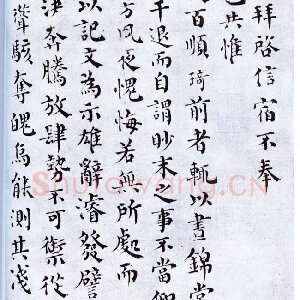 拜啓信宿不奉
色共惟
百順琦前者輒以晝錦堂
干退而自謂眇末之事不當仰
方夙夜愧悔若無所處而
以記文為示雄辭濬發譬
津奔騰放肆勢不可禦從
聳駭奪魄烏能測其淺
Shufawang.CN